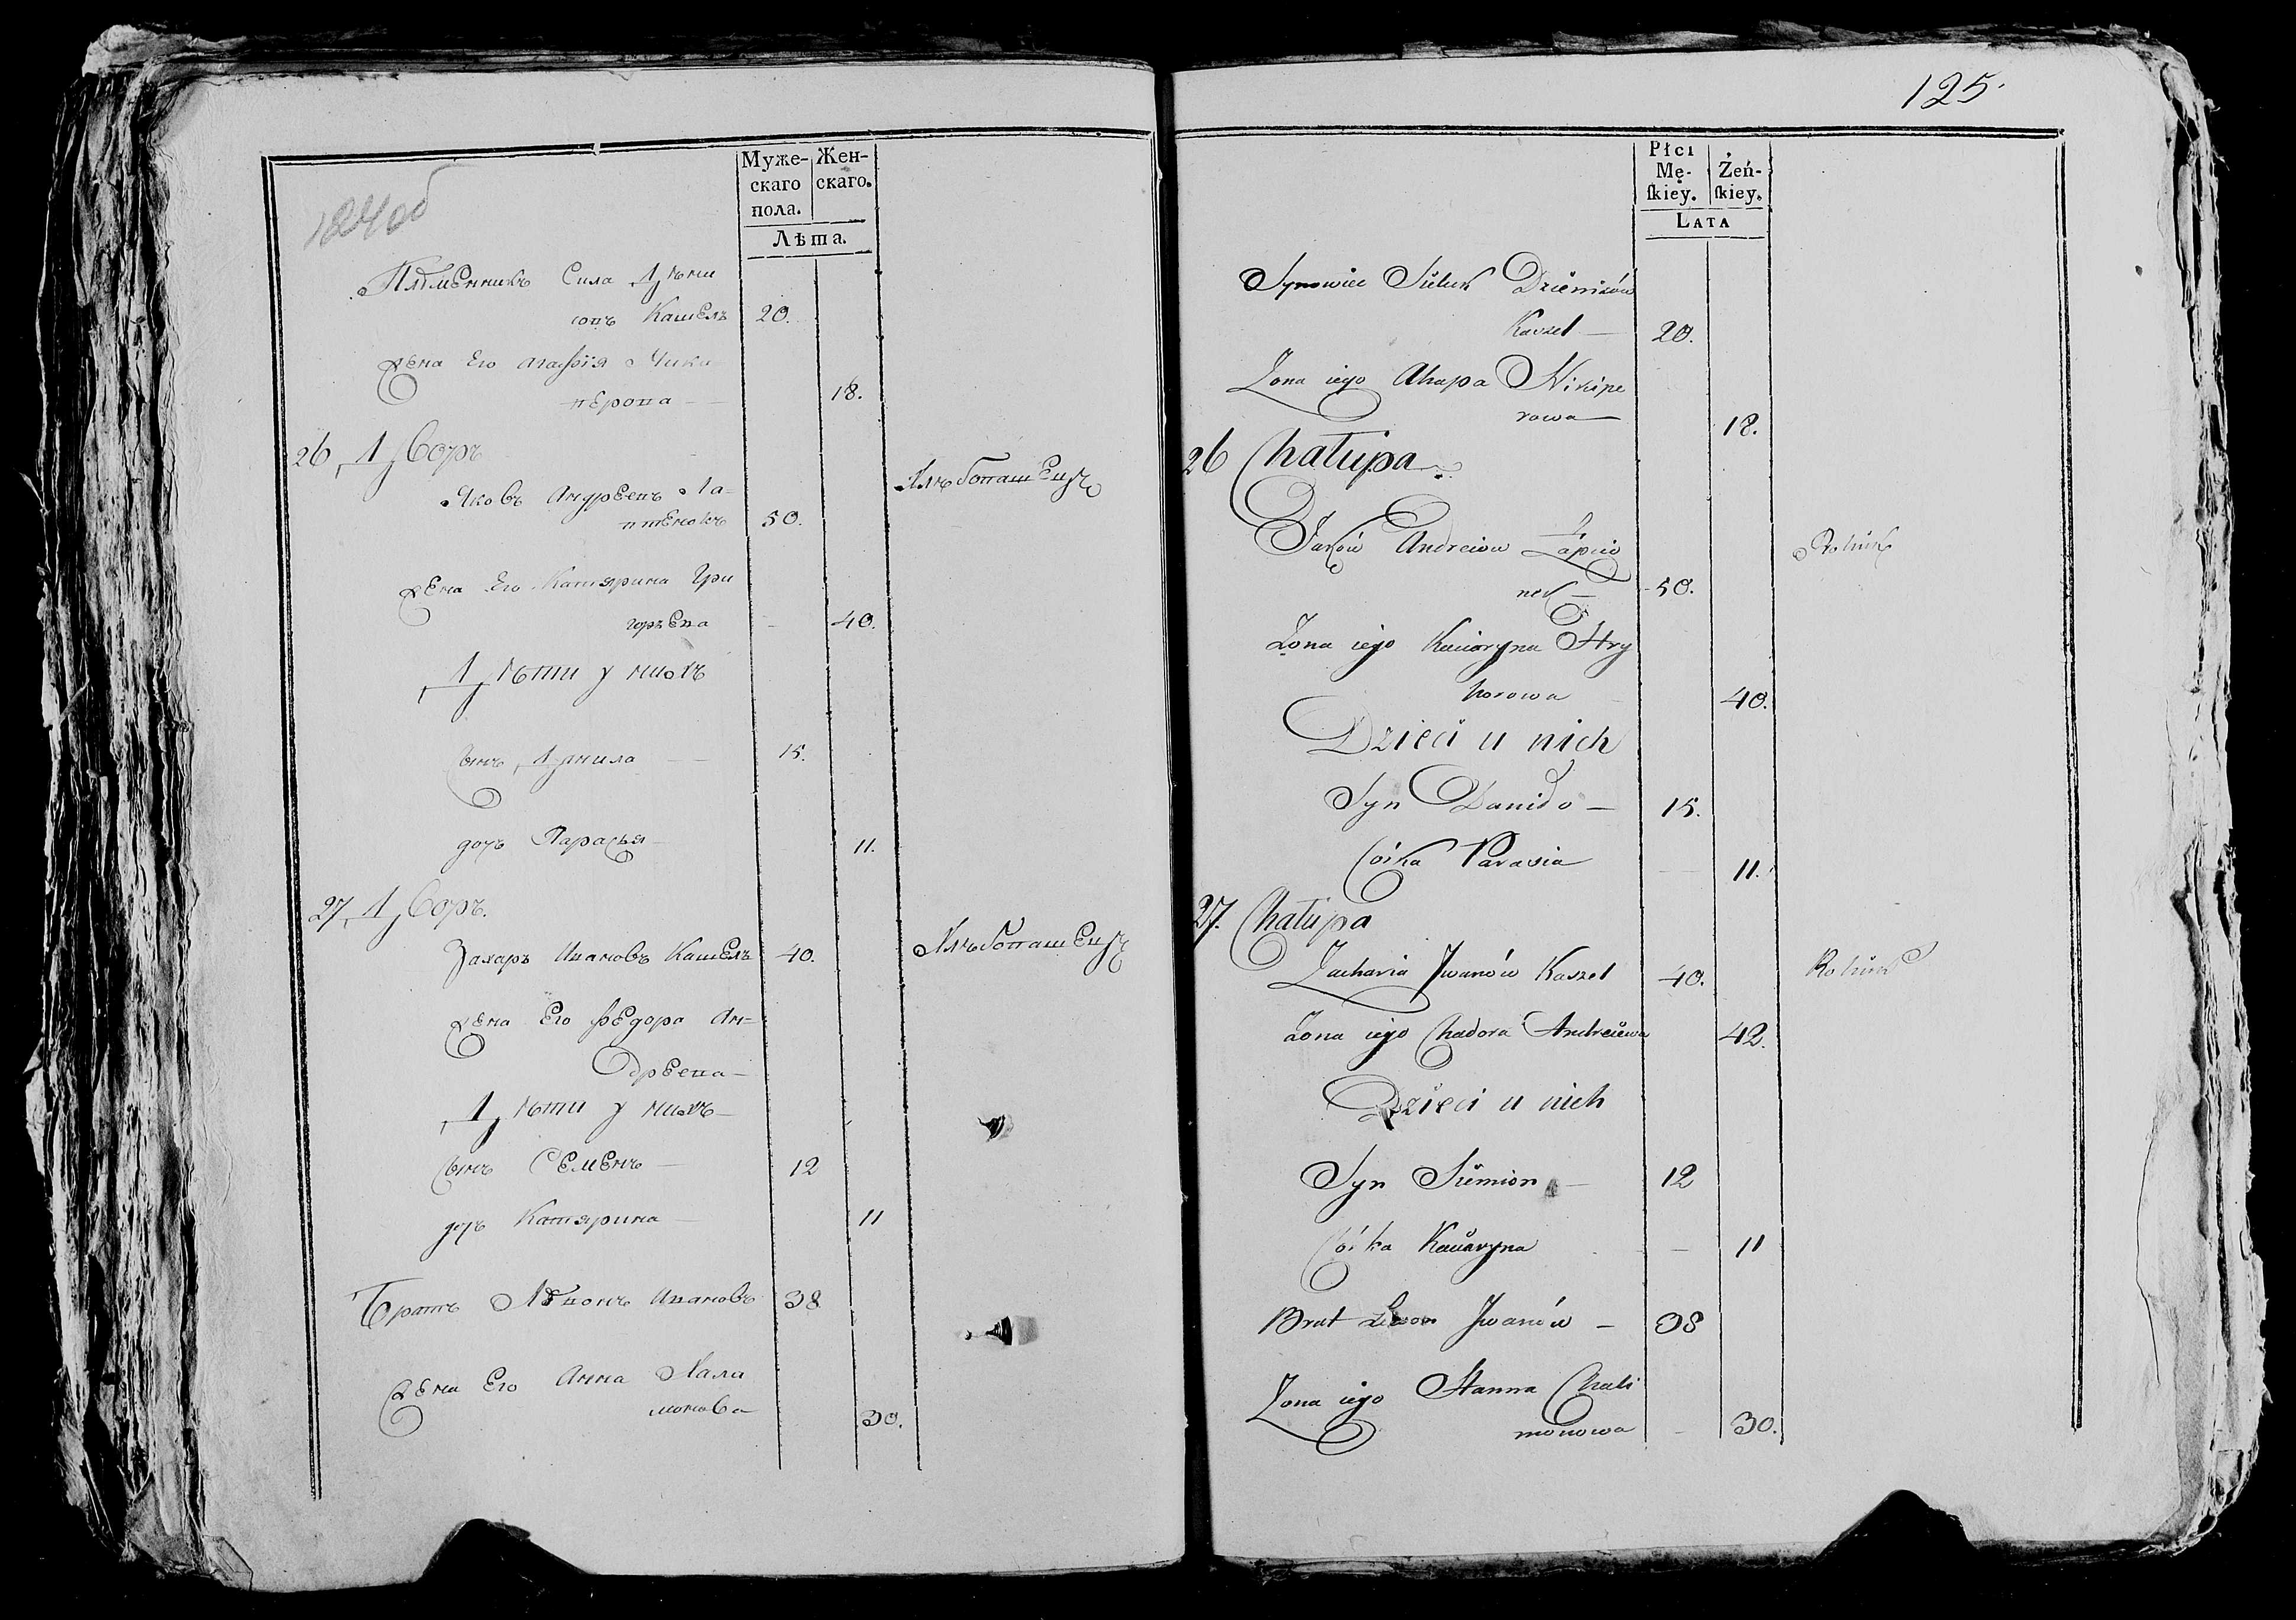 124 об
Муже-
скаго
пола.
Жен-
скаго.
Лѣта.
Племенникъ Сила Дѣми
совъ Кашель 20.
Жена Его Агафія Ники
перова 18.
26 Дворъ
Яковъ Андреевъ Ла-
птенокъ 50. Хлѣбопашецъ
Жена Его Катярина Гри
горьева 40.
Дѣти у нихъ
Сынъ Днила 15.
дочь Парасья 11.
27 Дворъ.
Захаръ Ивановъ Кашель 40. Хлѣбопашецъ
Жена Его Федора Ан-
дреева
Дѣти у нихъ
Сынъ Семенъ 12
дочь Катярина 11
Братъ Левонъ Ивановъ 38
Жена Его Анна Хали
монова 30.
125.
Płci
Mę-
skiey.
Żeń-
skiey.
LATA
Synowiec Siluk Dziemidów
Kaszel 20.
Zona iego Ahapa Nikipe
rowa 18.
26 Chałupa
Jakow Andreiow Łapcio
nek 50. Rolnik
Zona iego Kaciaryna Hry
horowa 40.
Dzieci u nich
Syn Daniło 15.
Córka Parasia 11.
27. Chałupa
Zacharia Jwanów Kaszel 40. Rolnik
Zona iego Chadora Andreiewa 42.
Dzieci u nich
Syn Siemion 12
Córka Kaciaryna 11
Brat Lewon Jwanów 38
Zona iego Hanna Chali
monowa 30.